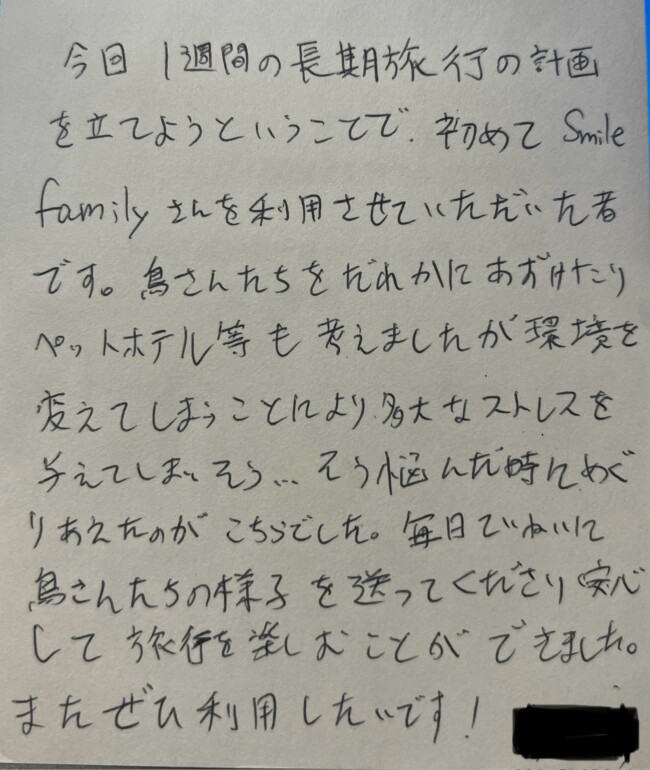 今回 1週間の長期旅行の計画
を立てようということで、初めて Smile
family さんを利用させていただいた者
です。鳥さんたちをだれかにあずけたり
ペットホテル等も考えましたが環境を
変えてしまうことにより多大なストレスを
与えてしまいそう… そう悩んだ時にめぐ
りあえたのがこちらでした。毎日ていねいに
鳥さんたちの様子を送ってくださり安心
して旅行を楽しむことができました。
またぜひ利用したいです!